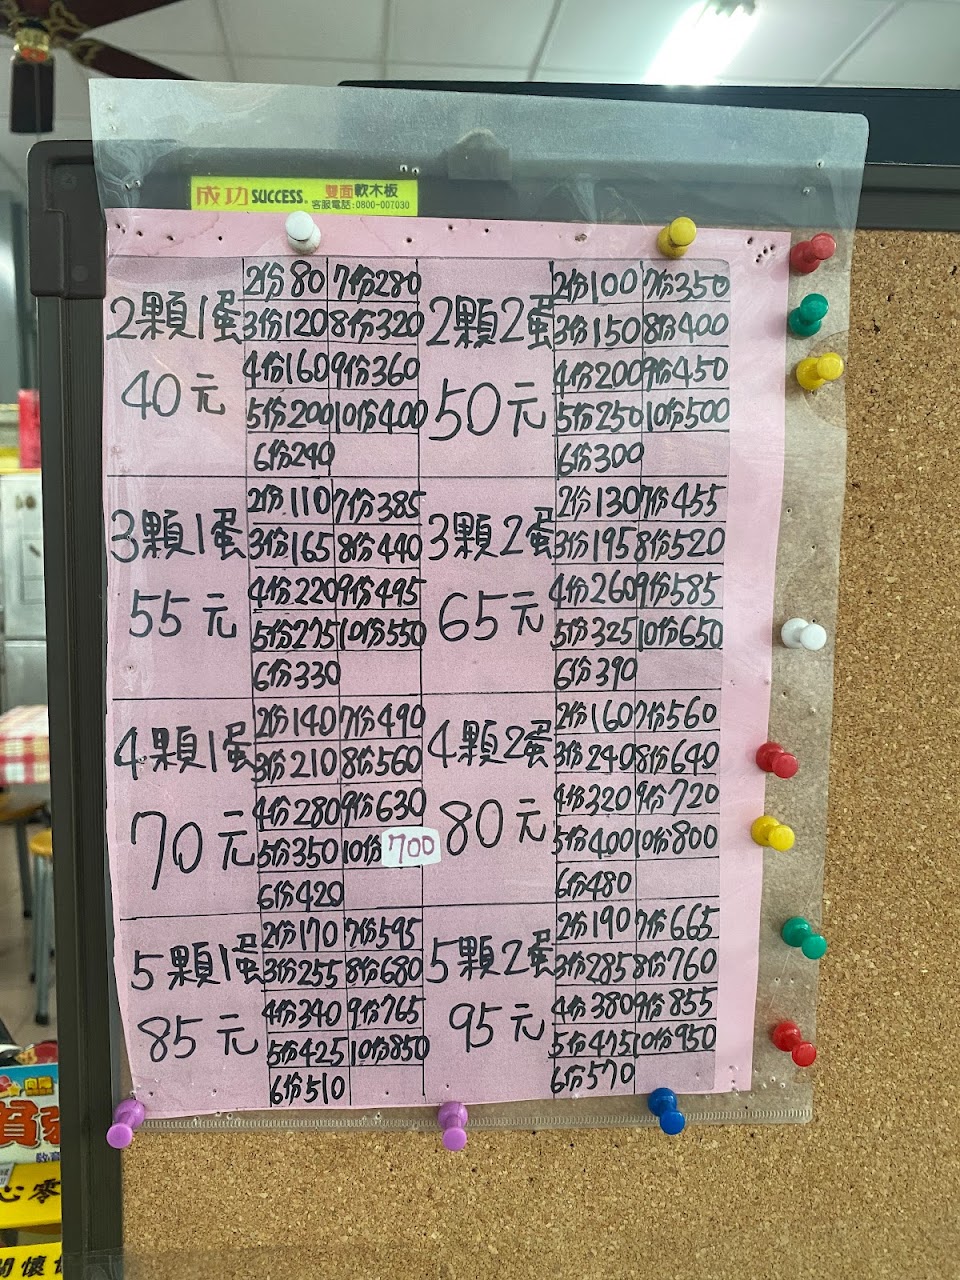 成功 SUCCESS® 雙面軟木板
客服電話:0800-007030
2顆1蛋
40元
2份80 7份280
3份120 8份320
4份160 9份360
5份200 10份400
6份240
2顆2蛋
50元
2份100 7份350
3份150 8份400
4份200 9份450
5份250 10份500
6份300
3顆1蛋
55元
2份110 7份385
3份165 8份440
4份220 9份495
5份275 10份550
6份330
3顆2蛋
65元
2份130 7份455
3份195 8份520
4份260 9份585
5份325 10份650
6份390
4顆1蛋
70元
2份140 7份490
3份210 8份560
4份280 9份630
5份350 10份700
6份420
4顆2蛋
80元
2份160 7份560
3份240 8份640
4份320 9份720
5份400 10份800
6份480
5顆1蛋
85元
2份170 7份595
3份255 8份680
4份340 9份765
5份425 10份850
6份510
5顆2蛋
95元
2份190 7份665
3份285 8份760
4份380 9份855
5份475 10份950
6份570
心零
關懷